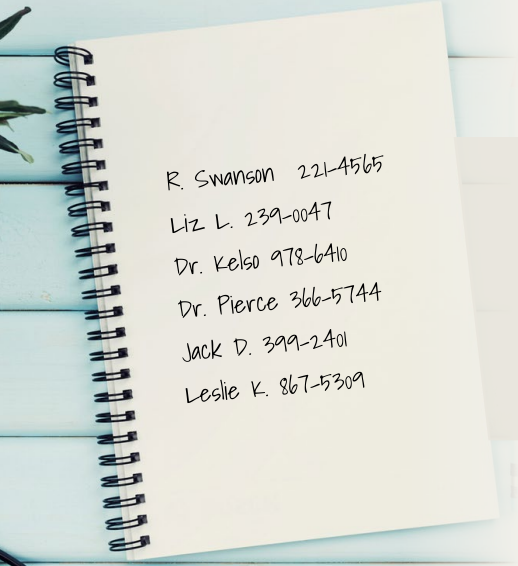 R. Swanson 221-4565
Liz L. 239-0047
Dr. Kelso 978-6410
Dr. Pierce 366-5744
Jack D. 399-2401
Leslie K. 867-5309